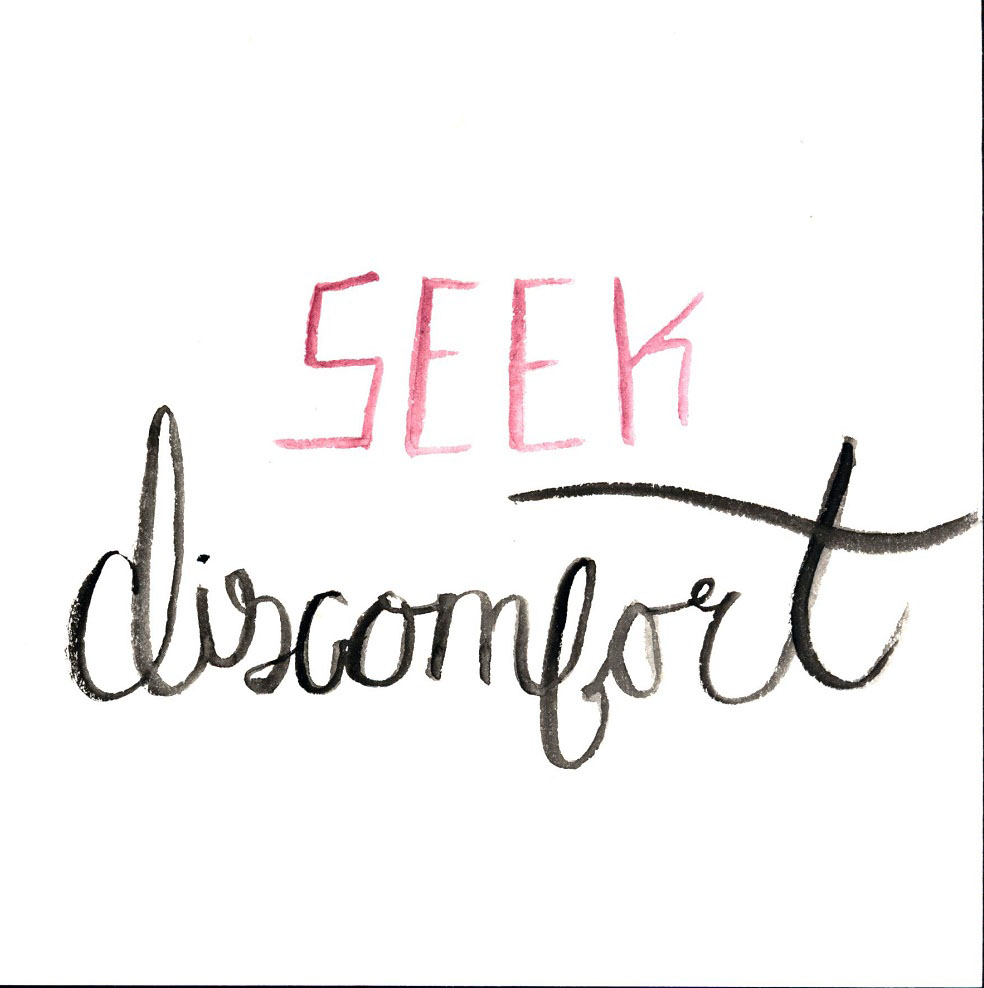 SEEK
discomfort